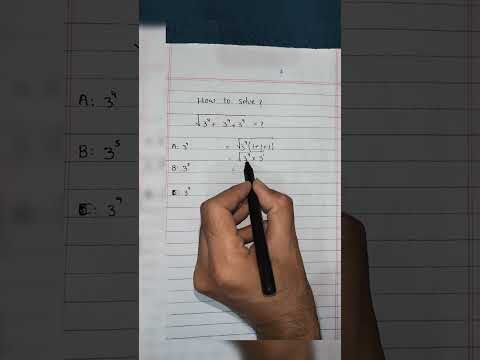 How to solve?
√3⁹ + 3⁹ + 3⁹ = ?
A: 3⁴ = √3⁹(1+1+1)
= √3⁹ × 3¹
B: 3⁵ =
C: 3⁹
A: 3⁴
B: 3⁵
C: 3⁹